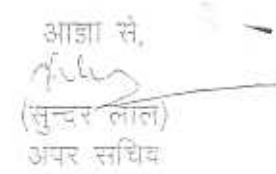 आज्ञा से,
(सुन्दर लाल)
अपर सचिव